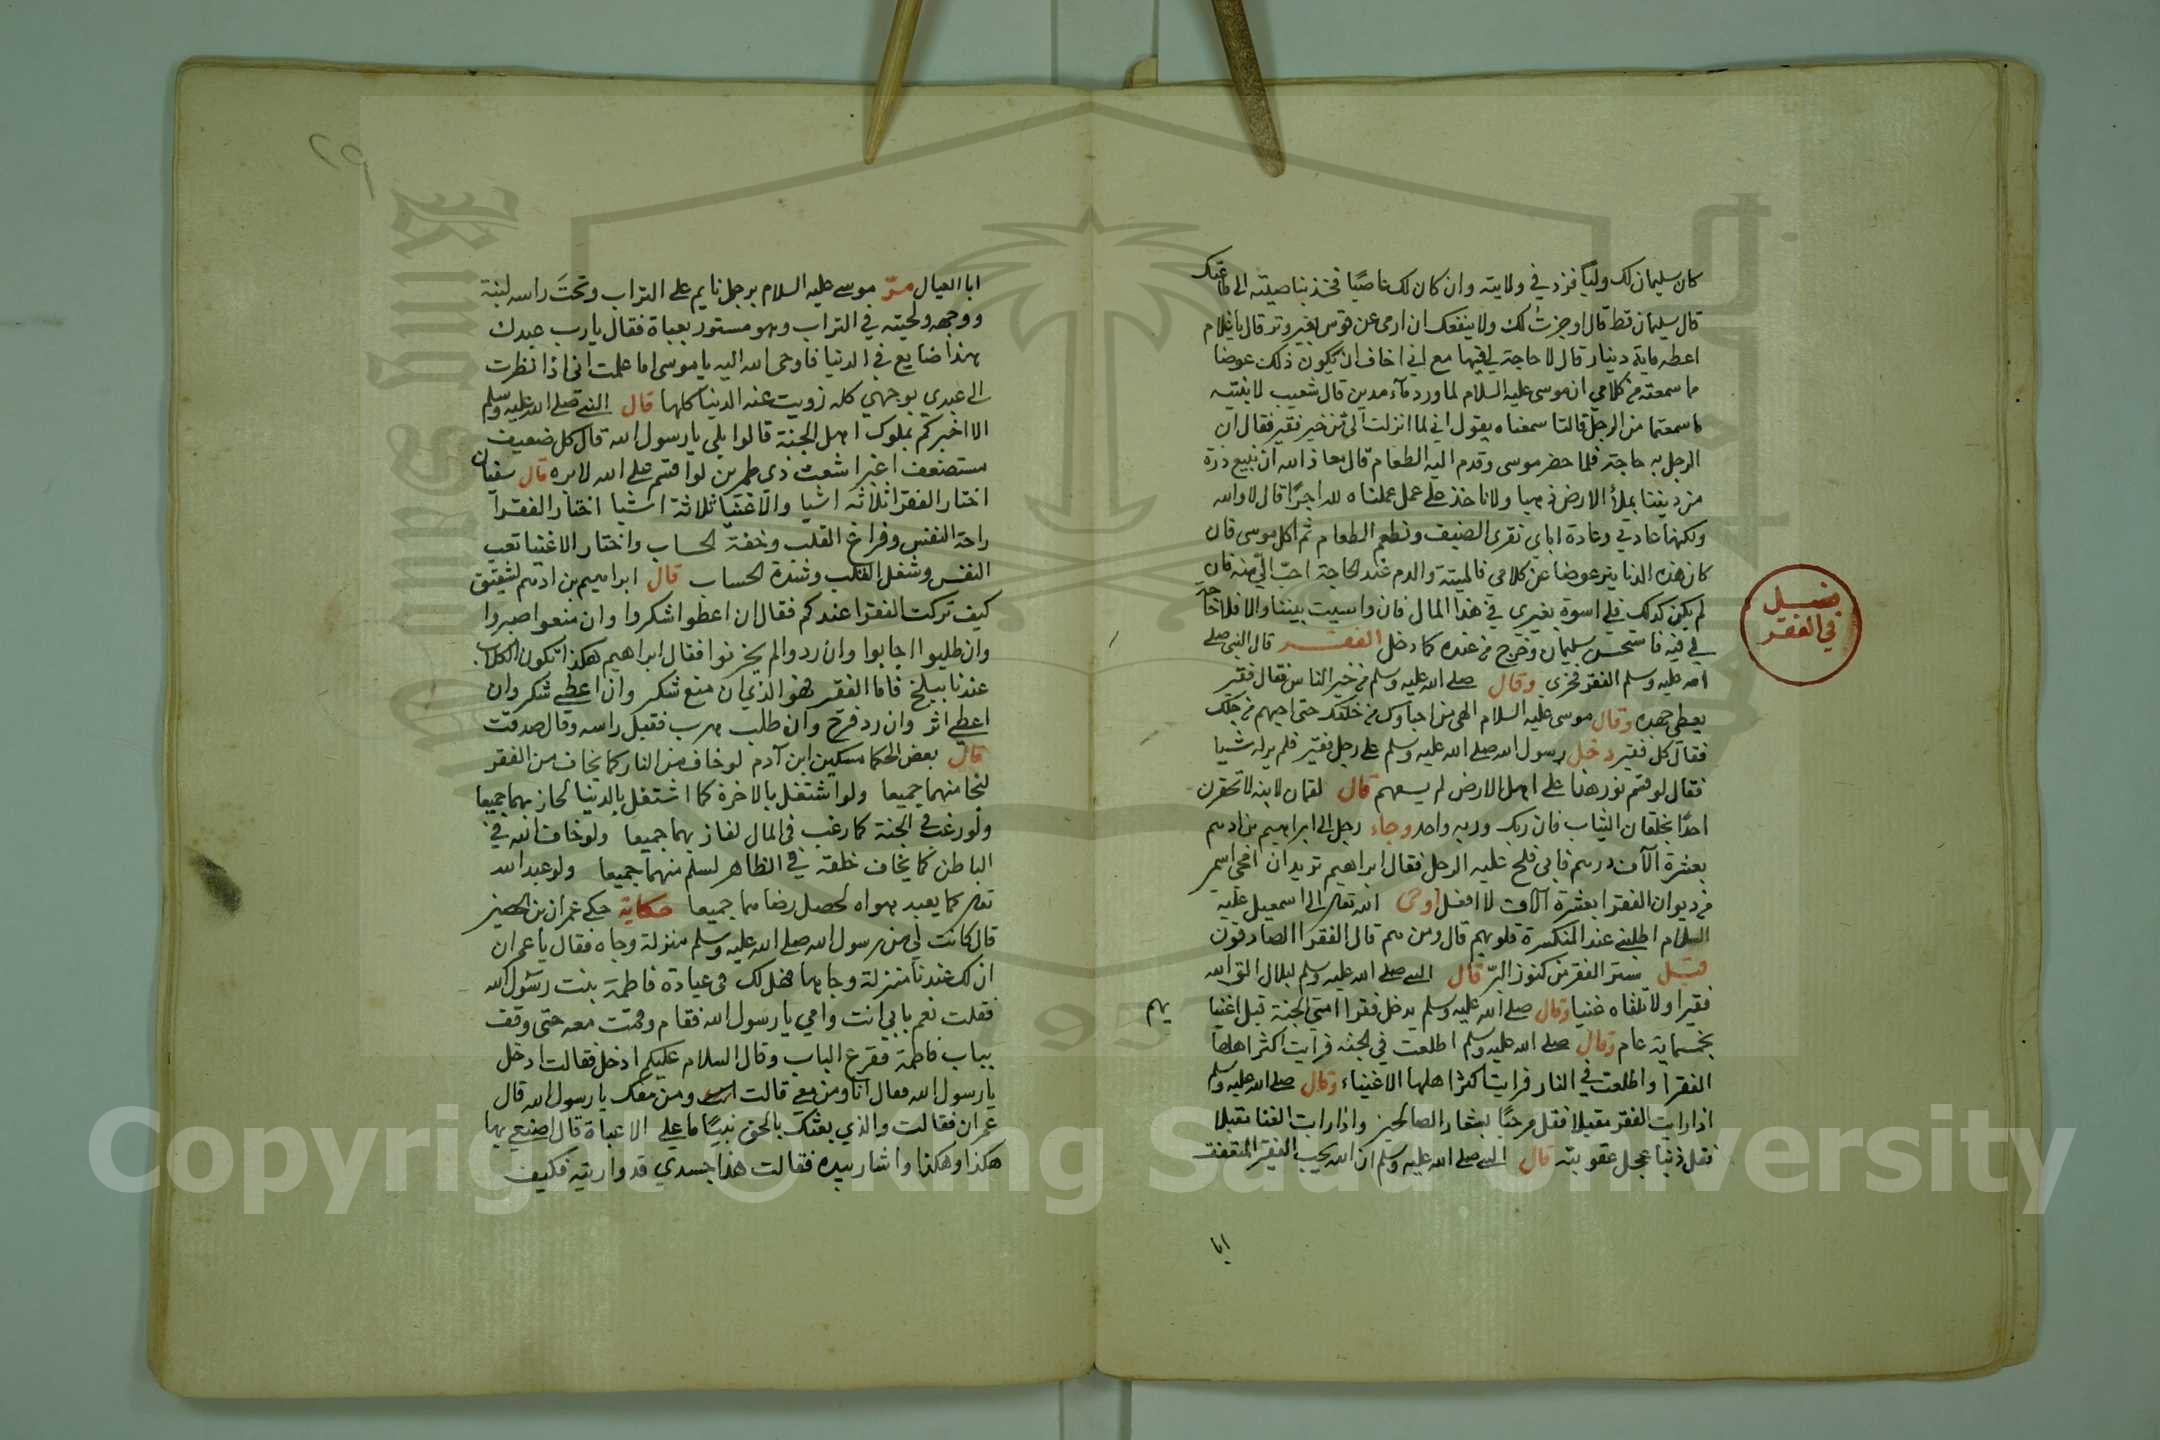 كان سليمان لك وليا فزد في ولايته وان كان لك عاصيا فخذ بناصيته الى طاعتك
قال سليمان قط قال اوجزت لك ولا ينفعك ان ارمى عن قوس بغير وتر قال يا غلام
اعطه ماية دينار قال لا حاجة لي فيها مع اني اخاف ان يكون ذلك عوضا
ما سمعته من كلامي ان موسى عليه السلام لما ورد ماء مدين قال شعيب لابنتيه
ما سمعتما من الرجل قالتا سمعناه يقول اني لما انزلت الي من خير فقير فقال ان
الرجل به حاجة فلما حضر موسى وقدم اليه الطعام قال معاذ الله ان نبيع ذرة
من ديننا بملأ الارض ذهبا ولا ناخذ على عمل عملناه لله اجرا قال لا والله
ولكنها عادتي وعادة اباي نقرى الضيف ونطعم الطعام ثم اكل موسى فان
كان هذه الدنانير عوضا عن كلامي فالميتة والدم عند الحاجة احب الي منه فان
لم يكن كذلك فلي اسوة بغيري في هذا المال فان واسيت بيننا والا فلا حاجة
لي فيه فاستحسن سليمان وخرج من عنده كما دخل الفقر قال النبي صلى
الله عليه وسلم الفقر فخري وقال صلى الله عليه وسلم من خير الناس فقال فقير
يعطي جهده وقال موسى عليه السلام الهي من احباوك من خلقك حتى احبهم من اجلك
فقال كل فقير دخل رسول الله صلى الله عليه وسلم على رجل فقير فلم ير له شيا
فقال لو قسم نور هذا على اهل الارض لوسعهم قال لقمان لابنه لا تحقرن
احدا بخلقان الثياب فان ربك وربه واحد وجاء رجل الى ابراهيم بن ادهم
بعشرة الآف درهم فابى فلح عليه الرجل فقال ابراهيم تريد ان امحي اسمي
من ديوان الفقرا بعشرة الآف لا افعل اوحى الله تعالى الى اسمعيل عليه
السلام اطلبني عند المنكسرة قلوبهم قال ومن هم قال الفقرا الصادقون
قيل ستر الفقر من كنوز البر قال النبي صلى الله عليه وسلم لبلال الق الله
فقيرا ولا تلقاه غنيا وقال صلى الله عليه وسلم يدخل فقرا امتي الجنة قبل اغنيا
يهم
بخمسماية عام وقال صلى الله عليه وسلم اطلعت في الجنة فرايت اكثر اهلها
الفقرا واطلعت في النار فرايت اكثر اهلها الاغنياء وقال صلى الله عليه وسلم
اذا رايت الفقر مقبلا فقل مرحبا بشعار الصالحين واذا رايت الغنا مقبلا
فقل ذنبا عجل عقوبته قال النبي صلى الله عليه وسلم ان الله يحب الفقير المتعفف
ابا
فصل
في الفقر
ابا العيال مر موسى عليه السلام برجل نايم على التراب وتحت راسه لبنة
ووجهه ولحيته في التراب وهو مستور بعباة فقال يا رب عبدك
هذا ضايع في الدنيا فاوحى الله اليه يا موسى اما علمت انى اذا نظرت
الى عبدي بوجهي كله زويت عنه الدنيا كلها قال النبي صلى الله عليه وسلم
الا اخبركم بملوك اهل الجنة قالوا بلي يا رسول الله قال كل ضعيف
مستضعف اغبر اشعث ذى طمرين لو اقسم على الله لابره قال سفيان
اختار الفقرا ثلاثة اشيا والاغنيا ثلاثة اشيا اختار الفقرا
راحة النفس وفراغ القلب وخفة الحساب واختار الاغنيا تعب
النفس وشغل القلب وشدة الحساب قال ابراهيم بن ادهم لشقيق
كيف تركت الفقرا عندكم فقال ان اعطوا شكروا وان منعوا صبروا
وان طلبوا اجابوا وان ردوا لم يحزنوا فقال ابراهيم هكذا تكون الكلاب
عندنا ببلخ فاما الفقير فهو الذي ان منع شكر وان اعطي شكر وان
اعطي اثر وان رد فرح وان طلب هرب فقبل راسه وقال صدقت
قال بعض الحكما مسكين ابن آدم لو خاف من النار كما يخاف من الفقر
لنجا منهما جميعا ولو اشتغل بالاخرة كما اشتغل بالدنيا لحاز بهما جميعا
ولو رغب في الجنة كما رغب في المال لفاز بهما جميعا ولو خاف الله في
الباطن كما يخاف خلقه في الظاهر لسلم منهما جميعا ولو عبد الله
تعالى كما يعبد هواه لحصل رضاهما جميعا حكاية حكي عمران بن الحصين
قال كانت لي من رسول الله صلى الله عليه وسلم منزلة وجاه فقال يا عمران
ان لك عندنا منزلة وجاها فهل لك في عيادة فاطمة بنت رسول الله
فقلت نعم بابي انت وامي يا رسول الله فقام وقمت معه حتى وقف
بباب فاطمة فقرع الباب وقال السلام عليكم ادخل فقالت ادخل
يا رسول الله فقال انا ومن معي قالت انت ومن معك يا رسول الله قال
عمران فقالت والذي بعثك بالحق نبيا ما علي الا عباة قال اصنعي بها
هكذا وهكذا واشار بيده فقالت هذا جسدي قد واريته فكيف
Copyright © King Saud University